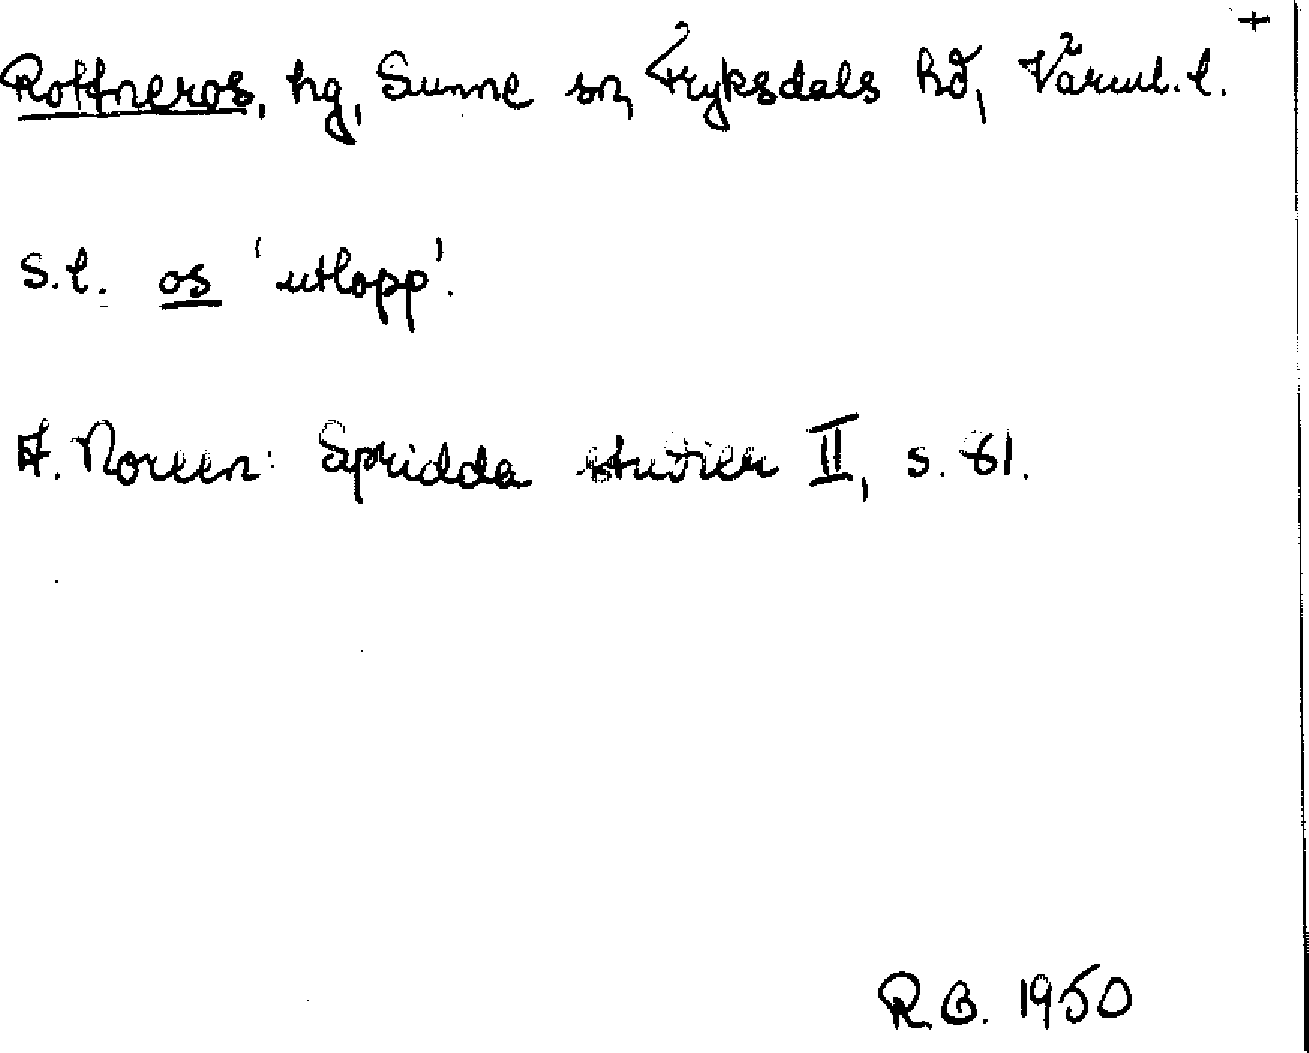 +
Rottneros, hg, Sunne sn, Fryksdals hd, Värml. l.
S.l. os 'utlopp'.
A. Noreen: Spridda studier II, s. 81.
R.G. 1950